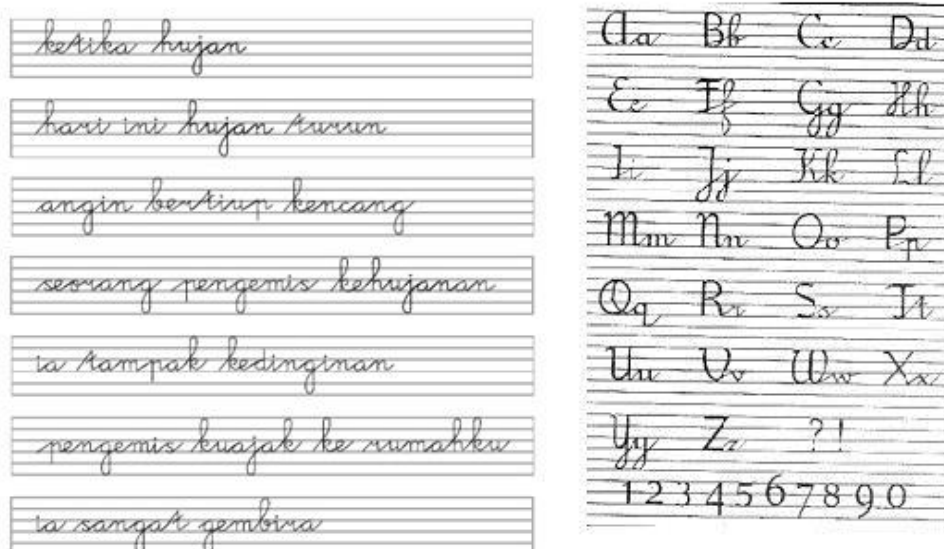 ketika hujan
hari ini hujan turun
angin bertiup kencang
seorang pengemis kehujanan
ia tampak kedinginan
pengemis kuajak ke rumahku
ia sangat gembira
Aa Bb Cc Dd
Ee Ff Gg Hh
Ii Jj Kk Ll
Mm Nn Oo Pp
Qq Rr Ss Tt
Uu Vv Ww Xx
Yy Zz ? !
1 2 3 4 5 6 7 8 9 0